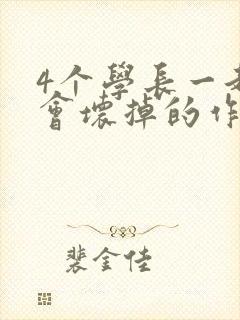 4个學長一起
會壞掉的作
裴金佳